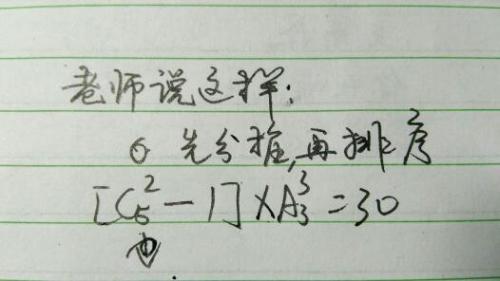 老师说这样:
先分堆,再排序
[C₅²-1]×A₃³=30